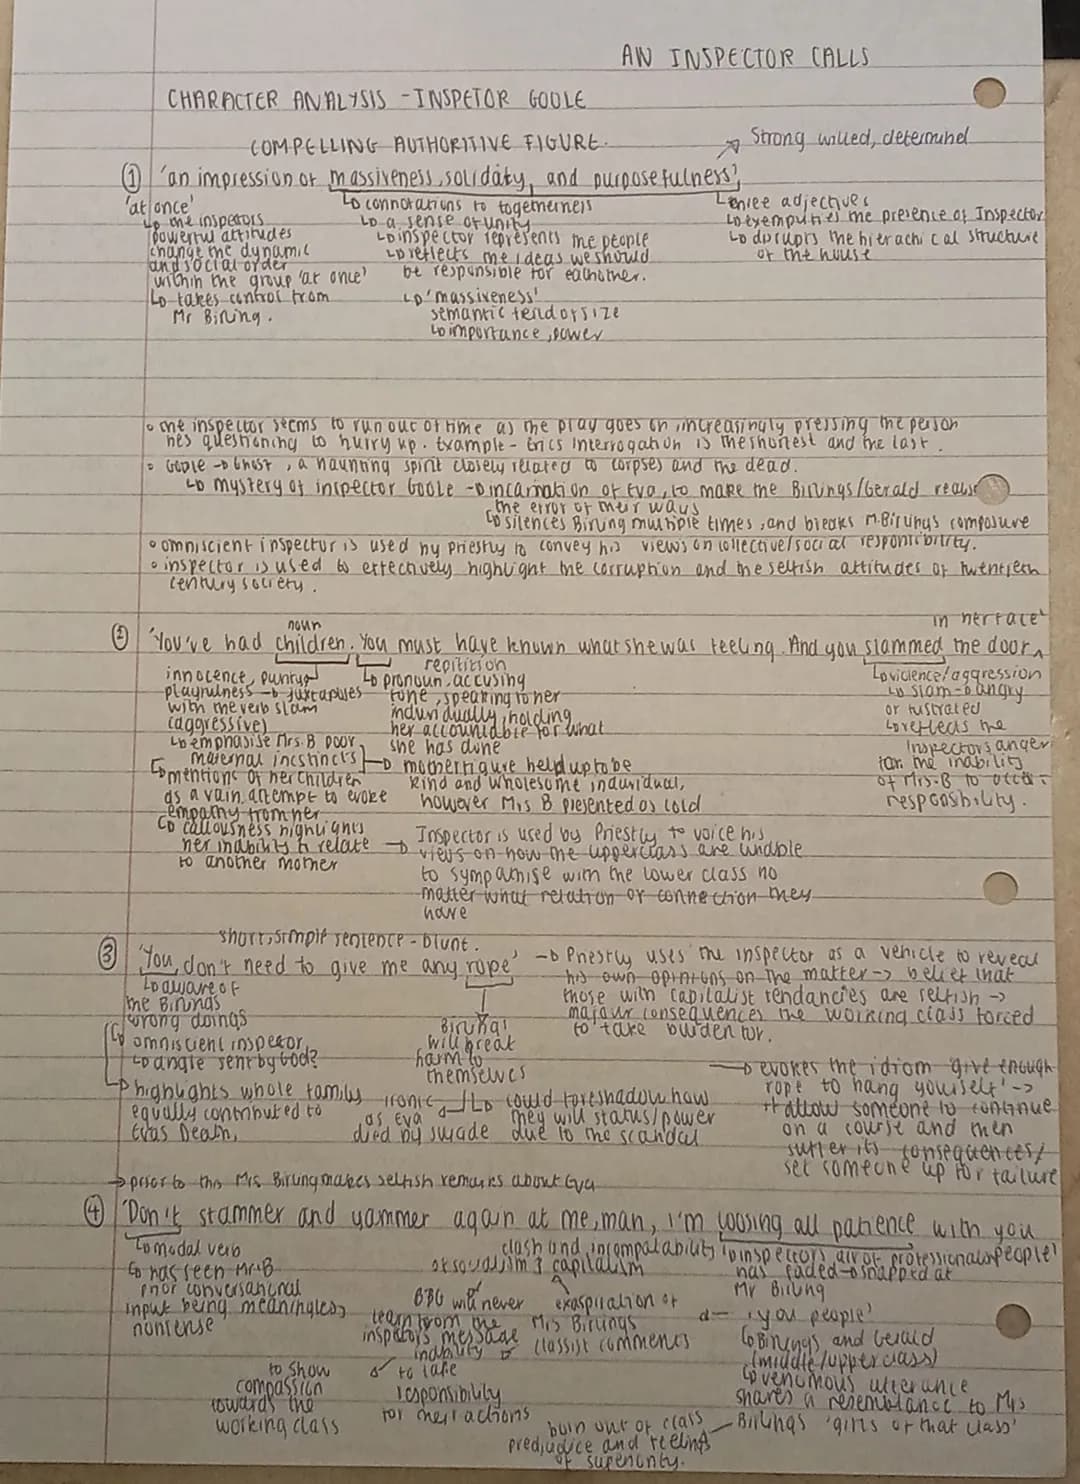 AN INSPECTOR CALLS
CHARACTER ANALYSIS - INSPETOR GOOLE
COMPELLING AUTHORITIVE FIGURE.
Strong willed, determined
① 'an impression of massiveness, solidity, and purposefulness'
'at once'
↳ the inspectors
powerful attitudes
change the dynamic
and social order
within the group 'at once'
↳ takes control from
Mr Birling.
↳ connotations to togetherness
↳ a sense of unity
↳ inspector represents the people
↳ reflects the ideas we should
be responsible for eachother.
↳ 'massiveness'
semantic field of size
↳ importance, power
↳ three adjectives
↳ exemplifies the presence of Inspector
↳ disrupts the hierachical structure
of the house
• the inspector seems to run out of time as the play goes on, increasingly pressing the person
hes questioning to hurry up. Example - Erics interrogation is the shortest and the last.
• Goole → Ghost, a haunting spirit closely related to corpses and the dead.
↳ mystery of inspector Goole → incarnation of Eva, to make the Birlings/Gerald realise
the error of their ways
↳ silences Birling multiple times, and breaks Mr.Birlings composure
• omniscient inspector is used by priestly to convey his views on collective/social responsibility.
• inspector is used to effectively highlight the corruption and the selfish attitudes of twentieth
century society.
② 'You've had children. You must have known what she was feeling. And you slammed the door in her face'
noun
innocence, purity
playfulness → juxtaposes
with the verb slam
(aggressive)
↳ emphasise Mrs.B poor
maternal incstincts
↳ mentions of her children
as a vain attempt to evoke
empathy from her
↳ callousness highlights
her inability to relate
to another mother
repitition
↳ pronoun, accusing
tone, speaking to her
individually, holding
her accountable for what
she has done
→ mother figure held up to be
kind and wholesome individual,
however Mrs B presented as cold
→ Inspector is used by Priestly to voice his
views on how the upperclass are unable
to sympathise with the lower class no
matter what relation or connection they
have
↳ violence/aggression
↳ slam → angry
or fustrated
↳ reflects the
Inspectors anger
for the inability
of Mrs.B to accept
responsibility.
short, simple sentence - blunt.
③ 'You don't need to give me any rope'
↳ aware of
the Birlings
wrong doings
↳ omniscient inspector,
↳ angle sent by God?
↳ highlights whole family
equally contributed to
Evas Death,
Birlings
will break
harm to
themselves
ironic
as Eva
died by suicide
↳ could foreshadow how
they will status/power
due to the scandal
→ Priestly uses the inspector as a vehicle to reveal
his own opinions on the matter → belief that
those with capitalist tendancies are selfish →
majour consequences the working class forced
to take burden for.
→ evokes the idiom 'give enough
rope to hang yourself' →
allow someone to continue
on a course and then
suffer its consequences/
set someone up for failure
→ prior to this Mrs Birling makes selfish remarks about Eva
④ 'Don't stammer and yammer again at me, man, I'm loosing all patience with you people'
↳ modal verb
↳ has seen Mr.B
prior conversational
input being meaningless,
nonsense
clash and incompatability
of socialism & capitalism
will never
learn from the
inspectors message
inability
to take
responsibility
for their actions
to show
compassion
towards the
working class
exaspiration of
Mrs Birlings
classist comments
↳ inspectors air of professionalism
has faded → snapped at
Mr Birling
'you people'
↳ Birlings and Gerald
(middle/upperclass)
↳ venomous utterance
shares a resemblance to Mrs
Birlings 'girls of that class'
born out of class
predjudice and feelings
of superiority.